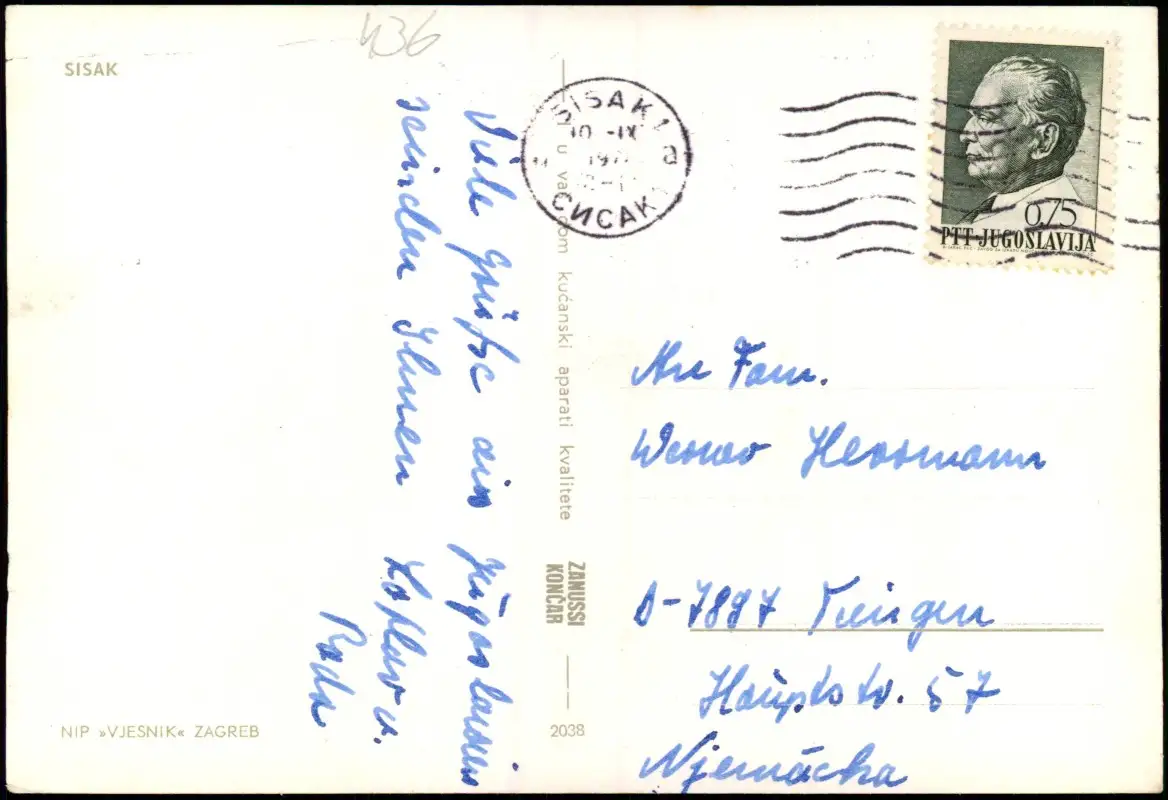 436
SISAK
SISAK 1
10 -IX
197
a
СИСАК
0,75
PTT-JUGOSLAVIJA
Viele grüße aus jugoslawien
seinden Ihnen Laslav u.
Rada
u vašem kućanski aparati kvalitete
ZANUSSI
KONČAR
2038
An Fam.
Werner Herrmann
D-7897 Tiengen
Hauptstr. 57
Njemačka
NIP »VJESNIK« ZAGREB